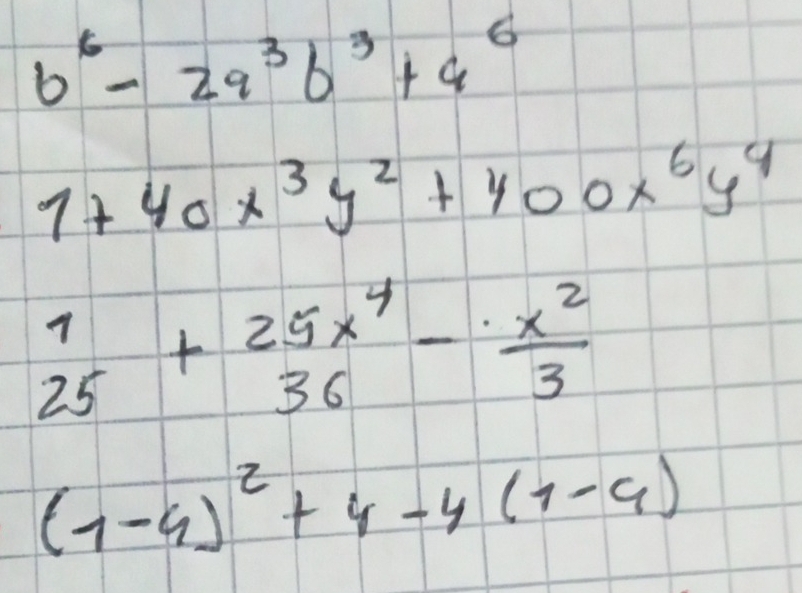 b⁶ - 2a³b³ + a⁶
1 + 40x³y² + 400x⁶y⁴
1/25 + 25x⁴/36 - x²/3
(1-a)² + 4 - 4(1-a)